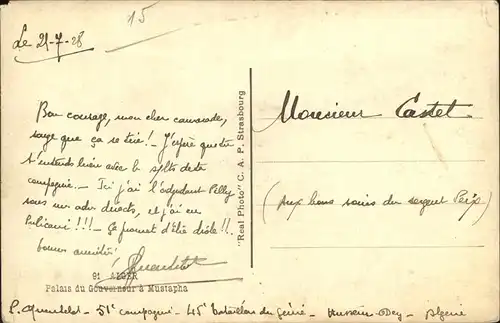 15
Le 21-7-28
Bon courage, mon cher camarade,
que ça se tire! - J'espère que tu
t'entends bien avec le de ta
compagnie. - Ici j'ai l'adjudant
sous ses ordres directs, et j'ai eu
!!! - Ça promet d'être drôle!!
bonne amitié
91 ALGER
Palais du Gouverneur à Mustapha
"Real Photo" C. A. P. Strasbourg
Monsieur Castet
(aux bons soins du sergent
51e compagnie - 45e bataillon du Génie - Hussein-Dey - Algérie